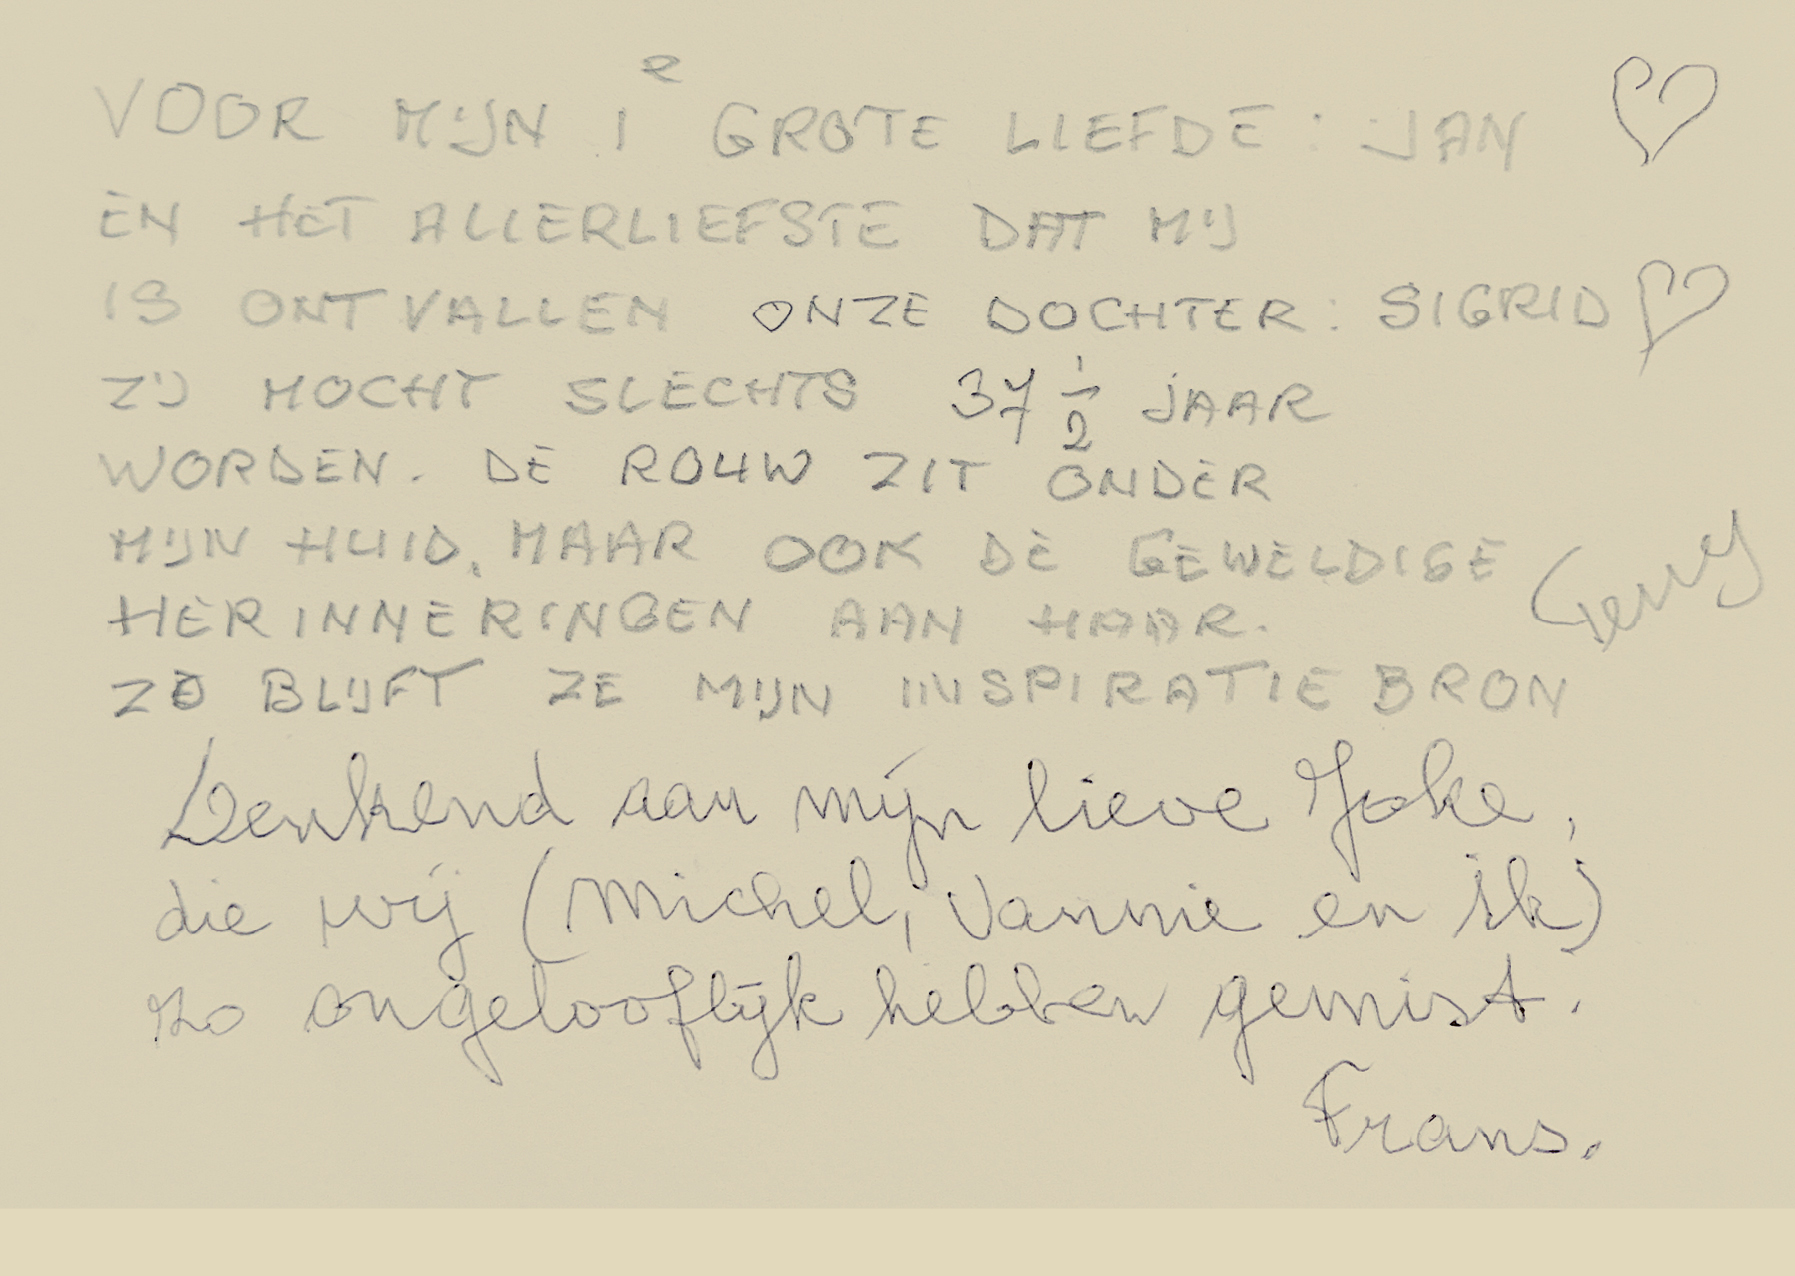 VOOR MIJN 1e GROTE LIEFDE: JAN ♡
EN HET ALLERLIEFSTE DAT MIJ
IS ONTVALLEN ONZE DOCHTER: SIGRID ♡
ZIJ MOCHT SLECHTS 37 1/2 JAAR
WORDEN. DE ROUW ZIT ONDER
MIJN HUID, MAAR OOK DE GEWELDIGE
HERINNERINGEN AAN HAAR.
Gerry
ZO BLIJFT ZE MIJN INSPIRATIEBRON
Denkend aan mijn lieve Joke,
die wij (Michel, Vannie en ik)
zo ongelooflijk hebben gemist.
Frans.